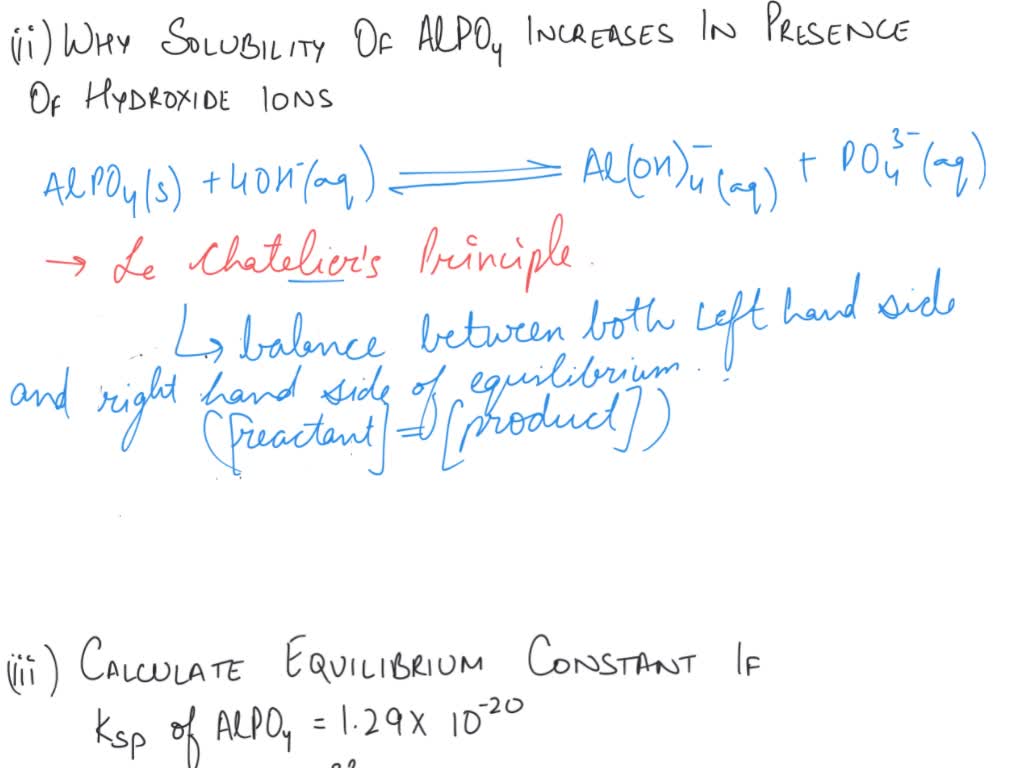 (ii) WHY SOLUBILITY OF AlPO₄ INCREASES IN PRESENCE
OF HYDROXIDE IONS
AlPO₄(s) + 4OH⁻(aq) ⇌ Al(OH)₄⁻(aq) + PO₄³⁻(aq)
→ Le Chatelier's Principle.
↳ balance between both left hand side
and right hand side of equilibrium.
([reactant] = [product])
(iii) CALCULATE EQUILIBRIUM CONSTANT IF
Ksp of AlPO₄ = 1.29 × 10⁻²⁰